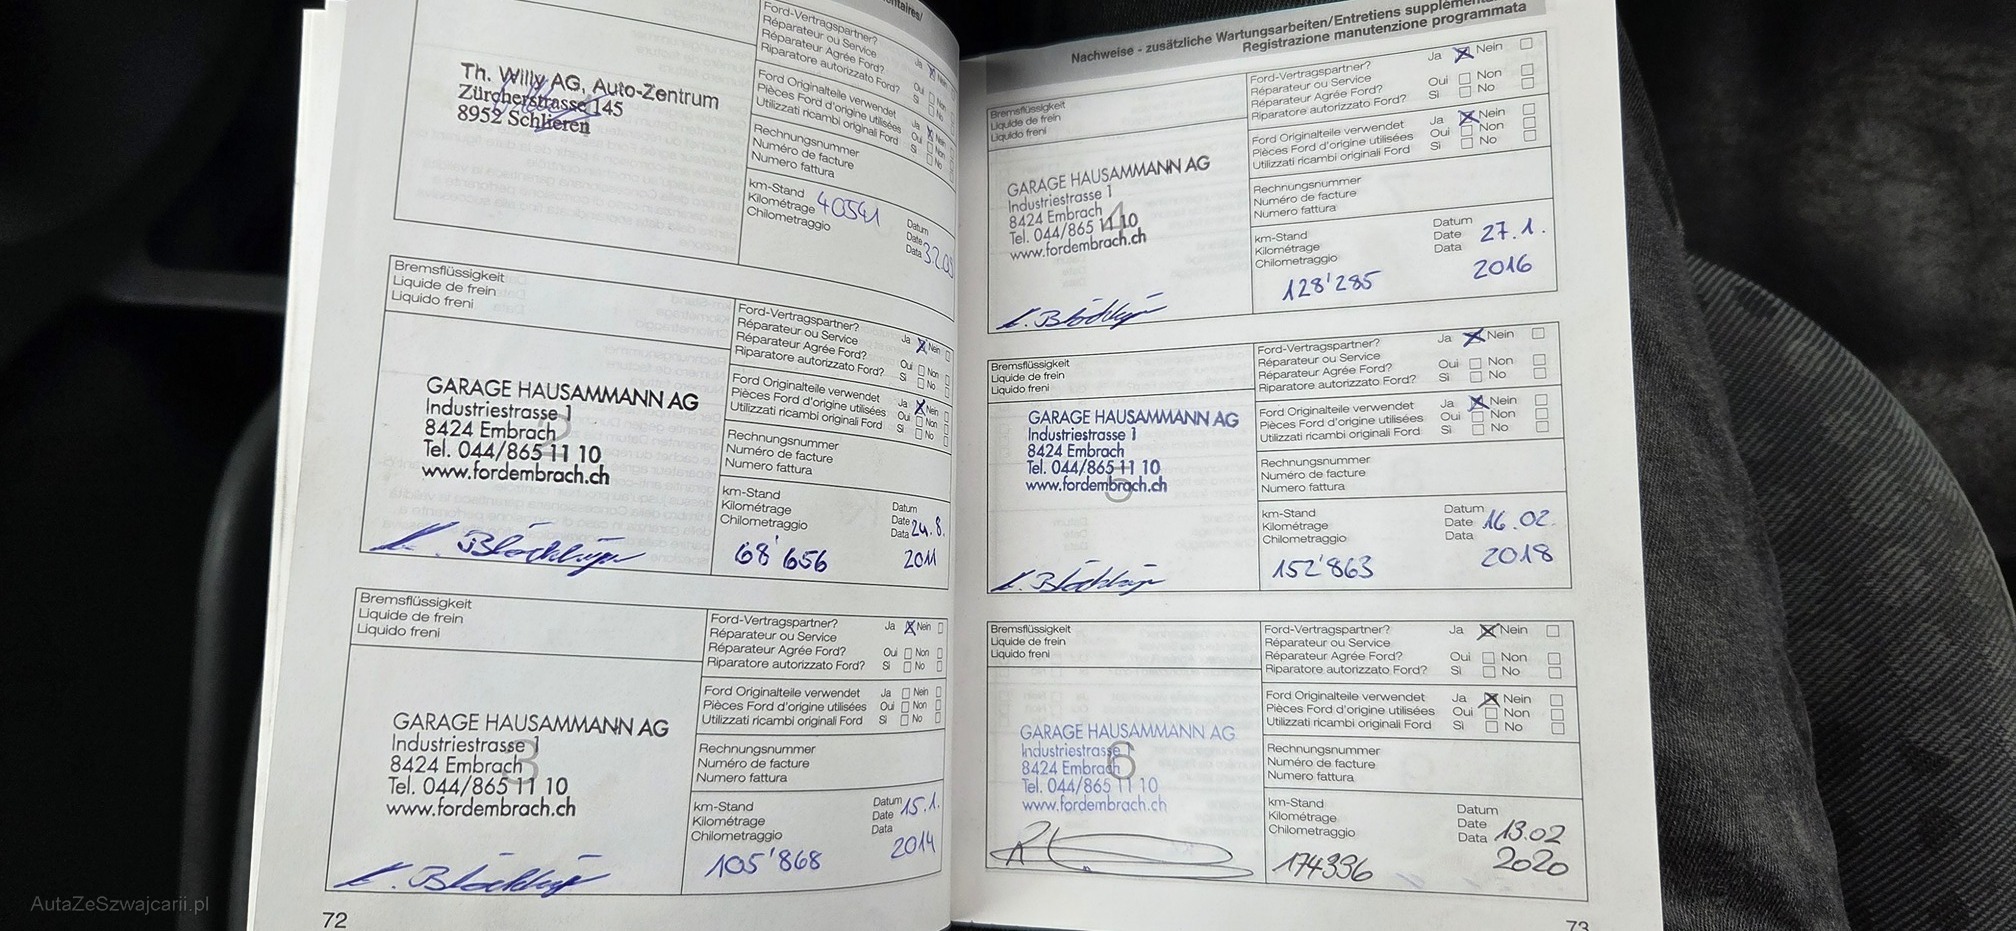 Th. Willy AG, Auto-Zentrum
Zürcherstrasse 145
8952 Schlieren
Ford-Vertragspartner?
Réparateur ou Service
Réparateur Agrée Ford?
Riparatore autorizzato Ford?
Ja Nein
Oui
Si
Ford Originalteile verwendet
Pièces Ford d'origine utilisées
Utilizzati ricambi originali Ford
Ja Nein
Oui Non
Si No
Rechnungsnummer
Numéro de facture
Numero fattura
km-Stand
Kilométrage 40541
Chilometraggio
Datum
Date
Data
Bremsflüssigkeit
Liquide de frein
Liquido freni
2
GARAGE HAUSAMMANN AG
Industriestrasse 1
8424 Embrach
Tel. 044/865 11 10
www.fordembrach.ch
Ford-Vertragspartner?
Réparateur ou Service
Réparateur Agrée Ford?
Riparatore autorizzato Ford?
Ja Nein
Oui Non
Si No
Ford Originalteile verwendet
Pièces Ford d'origine utilisées
Utilizzati ricambi originali Ford
Ja Nein
Oui Non
Si No
Rechnungsnummer
Numéro de facture
Numero fattura
km-Stand
Kilométrage
Chilometraggio
68'656
Datum
Date 24.8.
Data
2011
Bremsflüssigkeit
Liquide de frein
Liquido freni
3
GARAGE HAUSAMMANN AG
Industriestrasse 1
8424 Embrach
Tel. 044/865 11 10
www.fordembrach.ch
Ford-Vertragspartner?
Réparateur ou Service
Réparateur Agrée Ford?
Riparatore autorizzato Ford?
Ja Nein
Oui Non
Si No
Ford Originalteile verwendet
Pièces Ford d'origine utilisées
Utilizzati ricambi originali Ford
Ja Nein
Oui Non
Si No
Rechnungsnummer
Numéro de facture
Numero fattura
km-Stand
Kilométrage
Chilometraggio
105'868
Datum
Date 15.1.
Data
2014
72
Nachweise - zusätzliche Wartungsarbeiten/Entretiens
Registrazione manutenzione programmata
Bremsflüssigkeit
Liquide de frein
Liquido freni
4
GARAGE HAUSAMMANN AG
Industriestrasse 1
8424 Embrach
Tel. 044/865 11 10
www.fordembrach.ch
Ford-Vertragspartner?
Réparateur ou Service
Réparateur Agrée Ford?
Riparatore autorizzato Ford?
Ja Nein
Oui Non
Si No
Ford Originalteile verwendet
Pièces Ford d'origine utilisées
Utilizzati ricambi originali Ford
Ja Nein
Oui Non
Si No
Rechnungsnummer
Numéro de facture
Numero fattura
km-Stand
Kilométrage
Chilometraggio
128'285
Datum
Date 27.1.
Data
2016
Bremsflüssigkeit
Liquide de frein
Liquido freni
5
GARAGE HAUSAMMANN AG
Industriestrasse 1
8424 Embrach
Tel. 044/865 11 10
www.fordembrach.ch
Ford-Vertragspartner?
Réparateur ou Service
Réparateur Agrée Ford?
Riparatore autorizzato Ford?
Ja Nein
Oui Non
Si No
Ford Originalteile verwendet
Pièces Ford d'origine utilisées
Utilizzati ricambi originali Ford
Ja Nein
Oui Non
Si No
Rechnungsnummer
Numéro de facture
Numero fattura
km-Stand
Kilométrage
Chilometraggio
152'863
Datum
Date 16.02.
Data
2018
Bremsflüssigkeit
Liquide de frein
Liquido freni
6
GARAGE HAUSAMMANN AG
Industriestrasse 1
8424 Embrach
Tel. 044/865 11 10
www.fordembrach.ch
Ford-Vertragspartner?
Réparateur ou Service
Réparateur Agrée Ford?
Riparatore autorizzato Ford?
Ja Nein
Oui Non
Si No
Ford Originalteile verwendet
Pièces Ford d'origine utilisées
Utilizzati ricambi originali Ford
Ja Nein
Oui Non
Si No
Rechnungsnummer
Numéro de facture
Numero fattura
km-Stand
Kilométrage
Chilometraggio
174336
Datum
Date
Data 13.02
2020
73
AutaZeSzwajcarii.pl